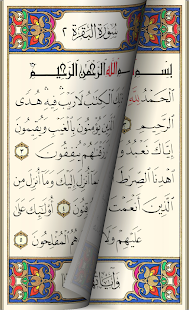 سُورَةُ الْبَقَرَةِ ٢
بِسْمِ اللَّهِ الرَّحْمَٰنِ الرَّحِيمِ
الْحَمْدُ لِلَّهِ الْكِتَٰبُ لَا رَيْبَ فِيهِ هُدًى
الرَّحِيمِ يُؤْمِنُونَ بِالْغَيْبِ وَيُقِيمُونَ
إِيَّاكَ نَعْبُدُ وَ رَزَقْنَٰهُمْ يُنفِقُونَ ٣
اهْدِنَا الصِّرَٰطَ أُنزِلَ إِلَيْكَ وَمَا أُنزِلَ مِن
الَّذِينَ أَنْعَمْتَ ٤ أُولَٰئِكَ عَلَىٰ
عَلَيْهِمْ وَلَا هُمُ الْمُفْلِحُونَ ٥